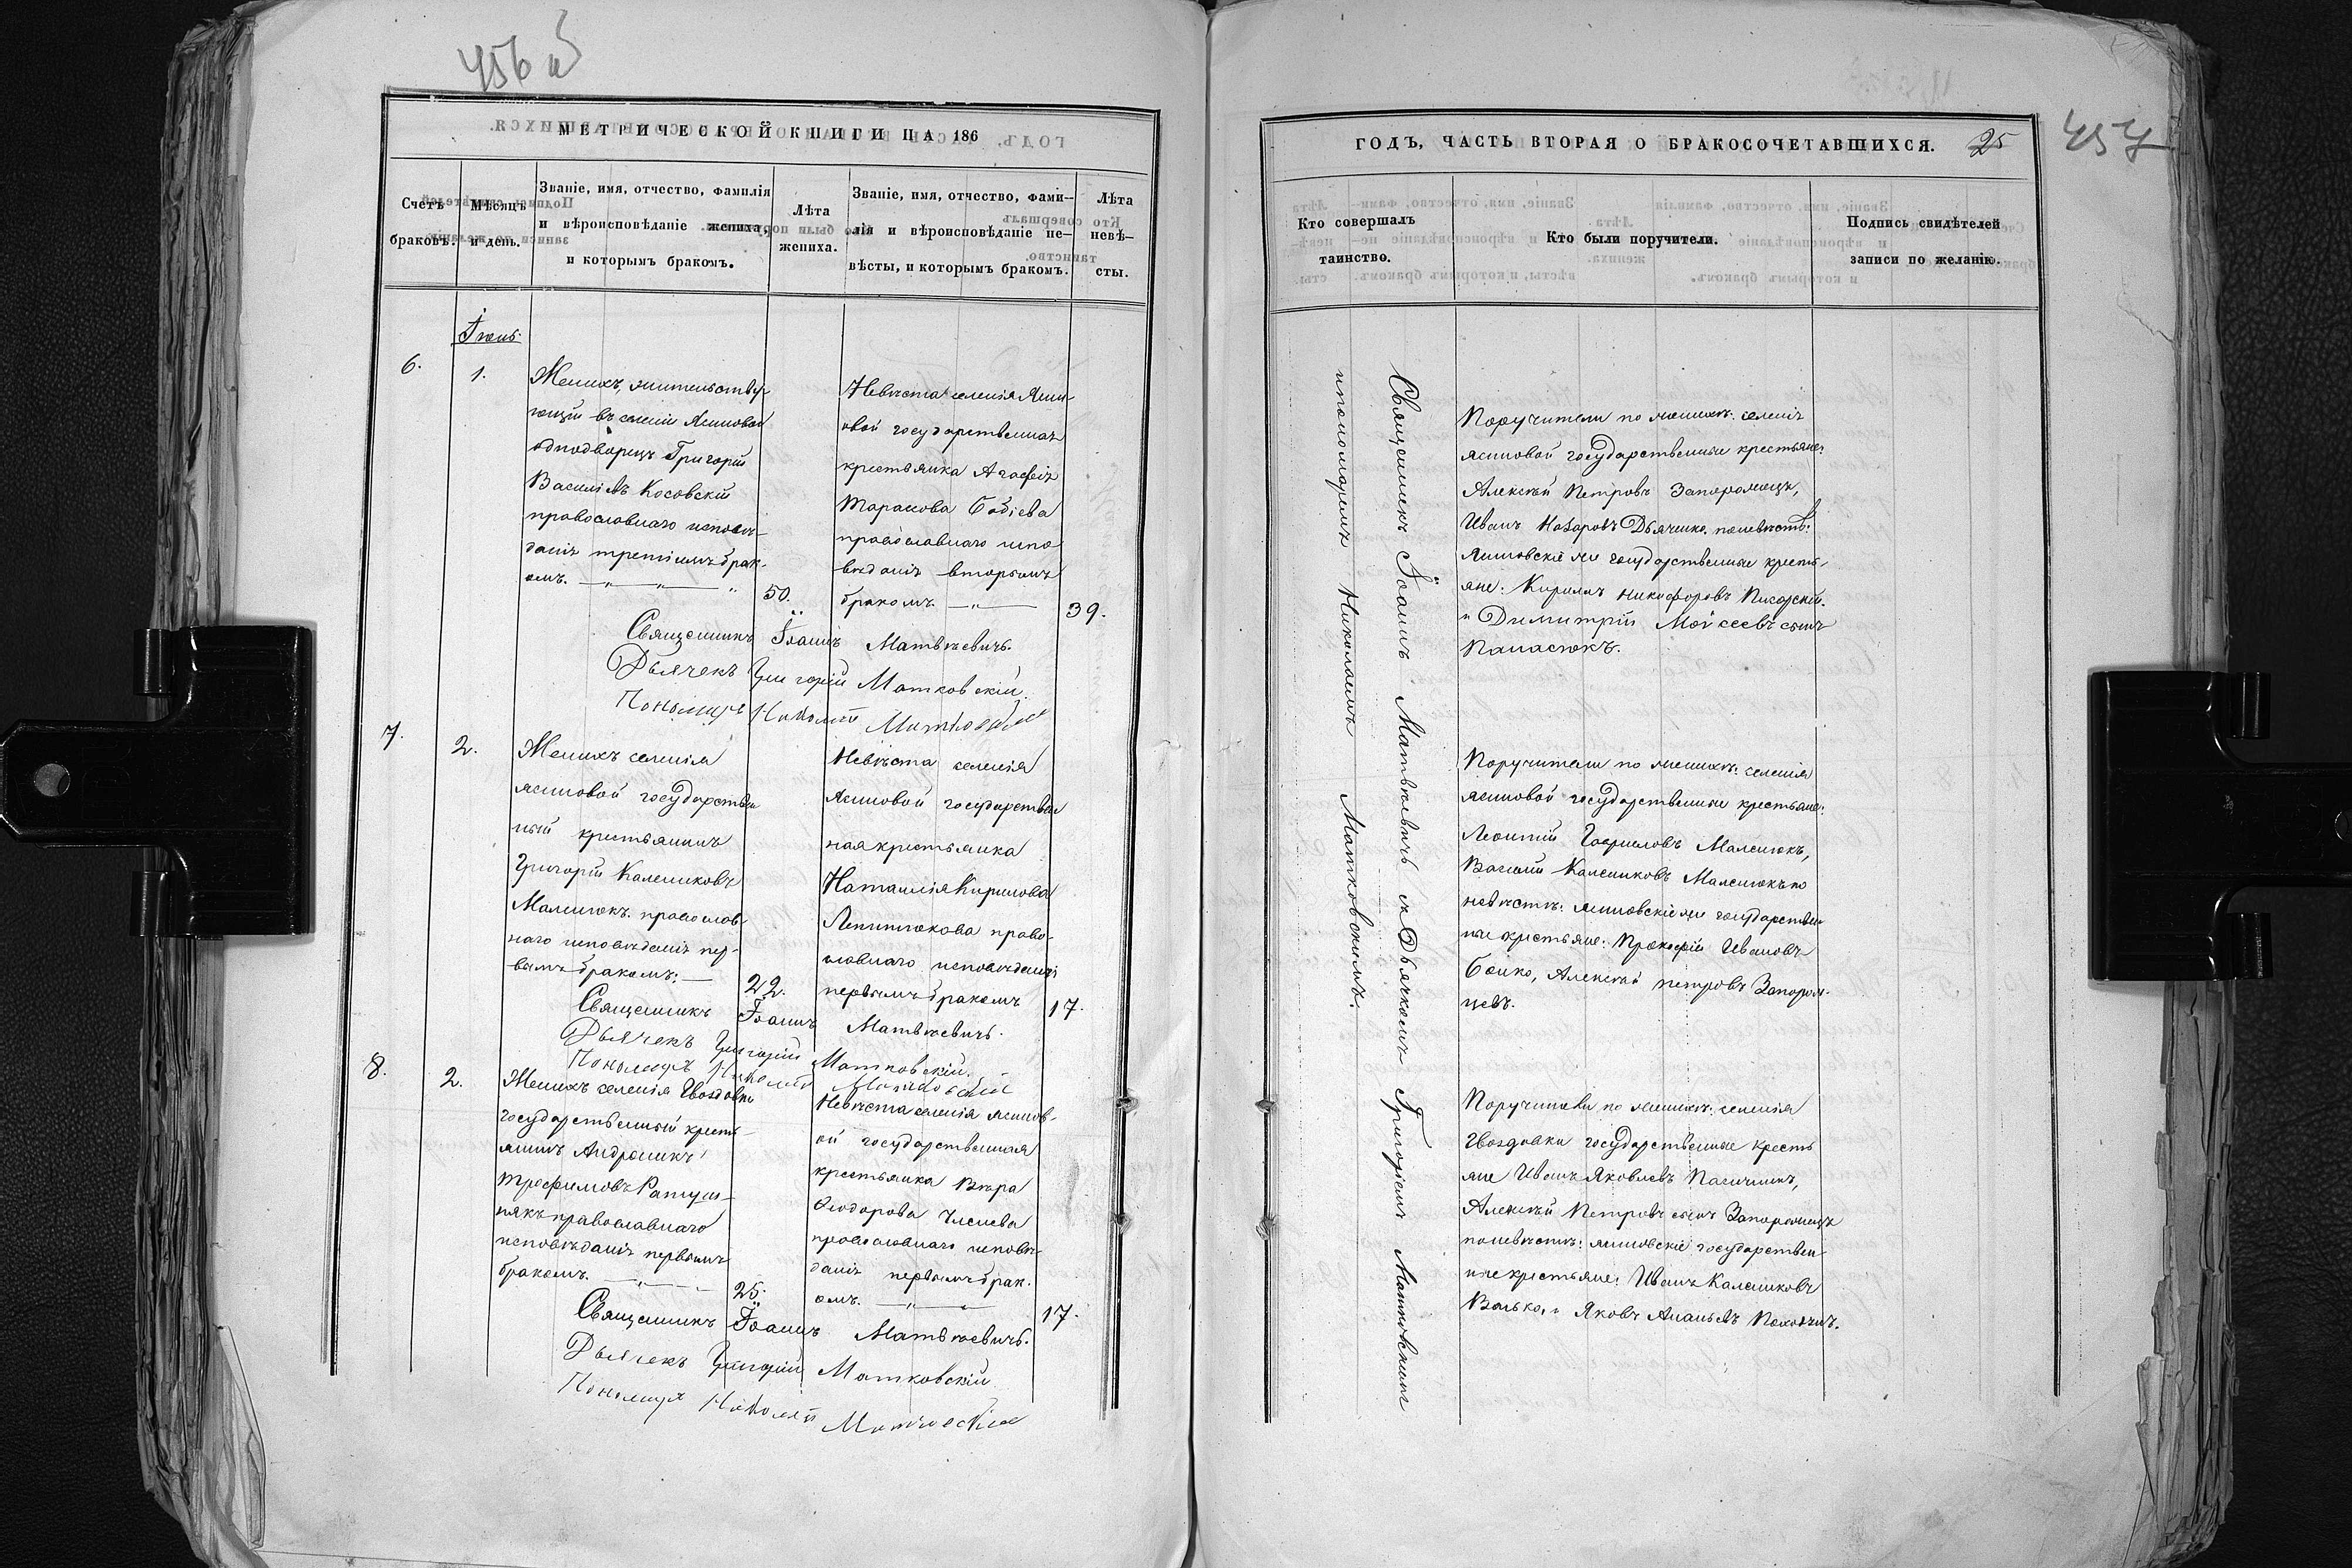 456 об
МЕТРИЧЕСКОЙ КНИГИ НА 186
Счетъ браковъ.
Мѣсяцъ и день.
Званіе, имя, отчество, фамилія
и вѣроисповѣданіе жениха,
и которымъ бракомъ.
Лѣта
жениха.
Званіе, имя, отчество, фами-
лія и вѣроисповѣданіе не-
вѣсты, и которымъ бракомъ.
Лѣта
невѣ-
сты.
Іюнь
6.
1.
Женихъ, жительству-
ющій въ селеніи Ясиновой
однодворецъ Григорій
Василіевъ Косовскій
православнаго исповѣ-
данія третіимъ брак-
омъ.
50.
Невѣста селенія Ясин-
овой государственная
крестьянка Агафія
Тарасова Бабіева
православнаго испо
вѣданія вторымъ
бракомъ.
39.
Священникъ Іоаннъ Матвѣевичъ.
Дьячекъ Григорій Матковскій.
Пономарь Николай Матковскій
7.
2.
Женихъ селенія
Ясиновой государствен
ный крестьянинъ
Григорій Калениковъ
Малсинюкъ православ-
наго исповѣданія пер-
вымъ бракомъ:
22.
Невѣста селенія
Ясиновой государствен
ная крестьянка
Наталія Кирилова
право-
славнаго исповѣданія
первымъ бракомъ
17.
Священникъ Іоаннъ Матвѣевичъ.
Дьячекъ Григорій Матковскій.
Пономарь Николай Матковскій
8.
2.
Женихъ селенія Гвоздавки
государственный кресть-
янинъ Андроникъ
Трофимовъ
православнаго
исповѣданія первымъ
бракомъ.
25.
Невѣста селенія Ясинов-
ой государственная
крестьянка Вѣра
Ѳеодорова
православнаго исповѣ-
данія первымъ брак-
омъ.
17.
Священникъ Іоаннъ Матвѣевичъ.
Дьячекъ Григорій Матковскій
Пономарь Николай Матковскій
ГОДЪ, ЧАСТЬ ВТОРАЯ О БРАКОСОЧЕТАВШИХСЯ.
25
457
Кто совершалъ
таинство.
Кто были поручители.
Подпись свидѣтелей
записи по желанію.
Священникъ Іоаннъ Матвѣевичъ съ Дьячкомъ Григоріемъ Матковскимъ
и пономаремъ Николаемъ Матковскимъ.
Поручители по женихѣ: селенія
Ясиновой государственные крестьяне:
Алексѣй Петровъ Запорожецъ,
Иванъ Назаровъ Дьяченко, по невѣстѣ:
Ясиновскіе же государственные кресть-
яне: Кирилъ Никифоровъ
и Димитрій Мойсеевъ сынъ
Панасюкъ.
Поручители по женихѣ: селенія
Ясиновой государственные крестьяне:
Леонтій Гавриловъ Малсинюкъ,
Василій Калениковъ Малсинюкъ по
невѣстѣ: Ясиновскіе же государствен-
ные крестьяне: Прокофій Ивановъ
Бойко, Алексѣй Петровъ Запорож-
цевъ.
Поручители по женихѣ: селенія
Гвоздавки государственные кресть
яне Иванъ Яковлевъ Пасичникъ,
Алексѣй Петровъ сынъ Запорожецъ
по невѣстѣ: Ясиновскіе государствен-
ные крестьяне: Иванъ Калениковъ
Яковъ Ананьевъ